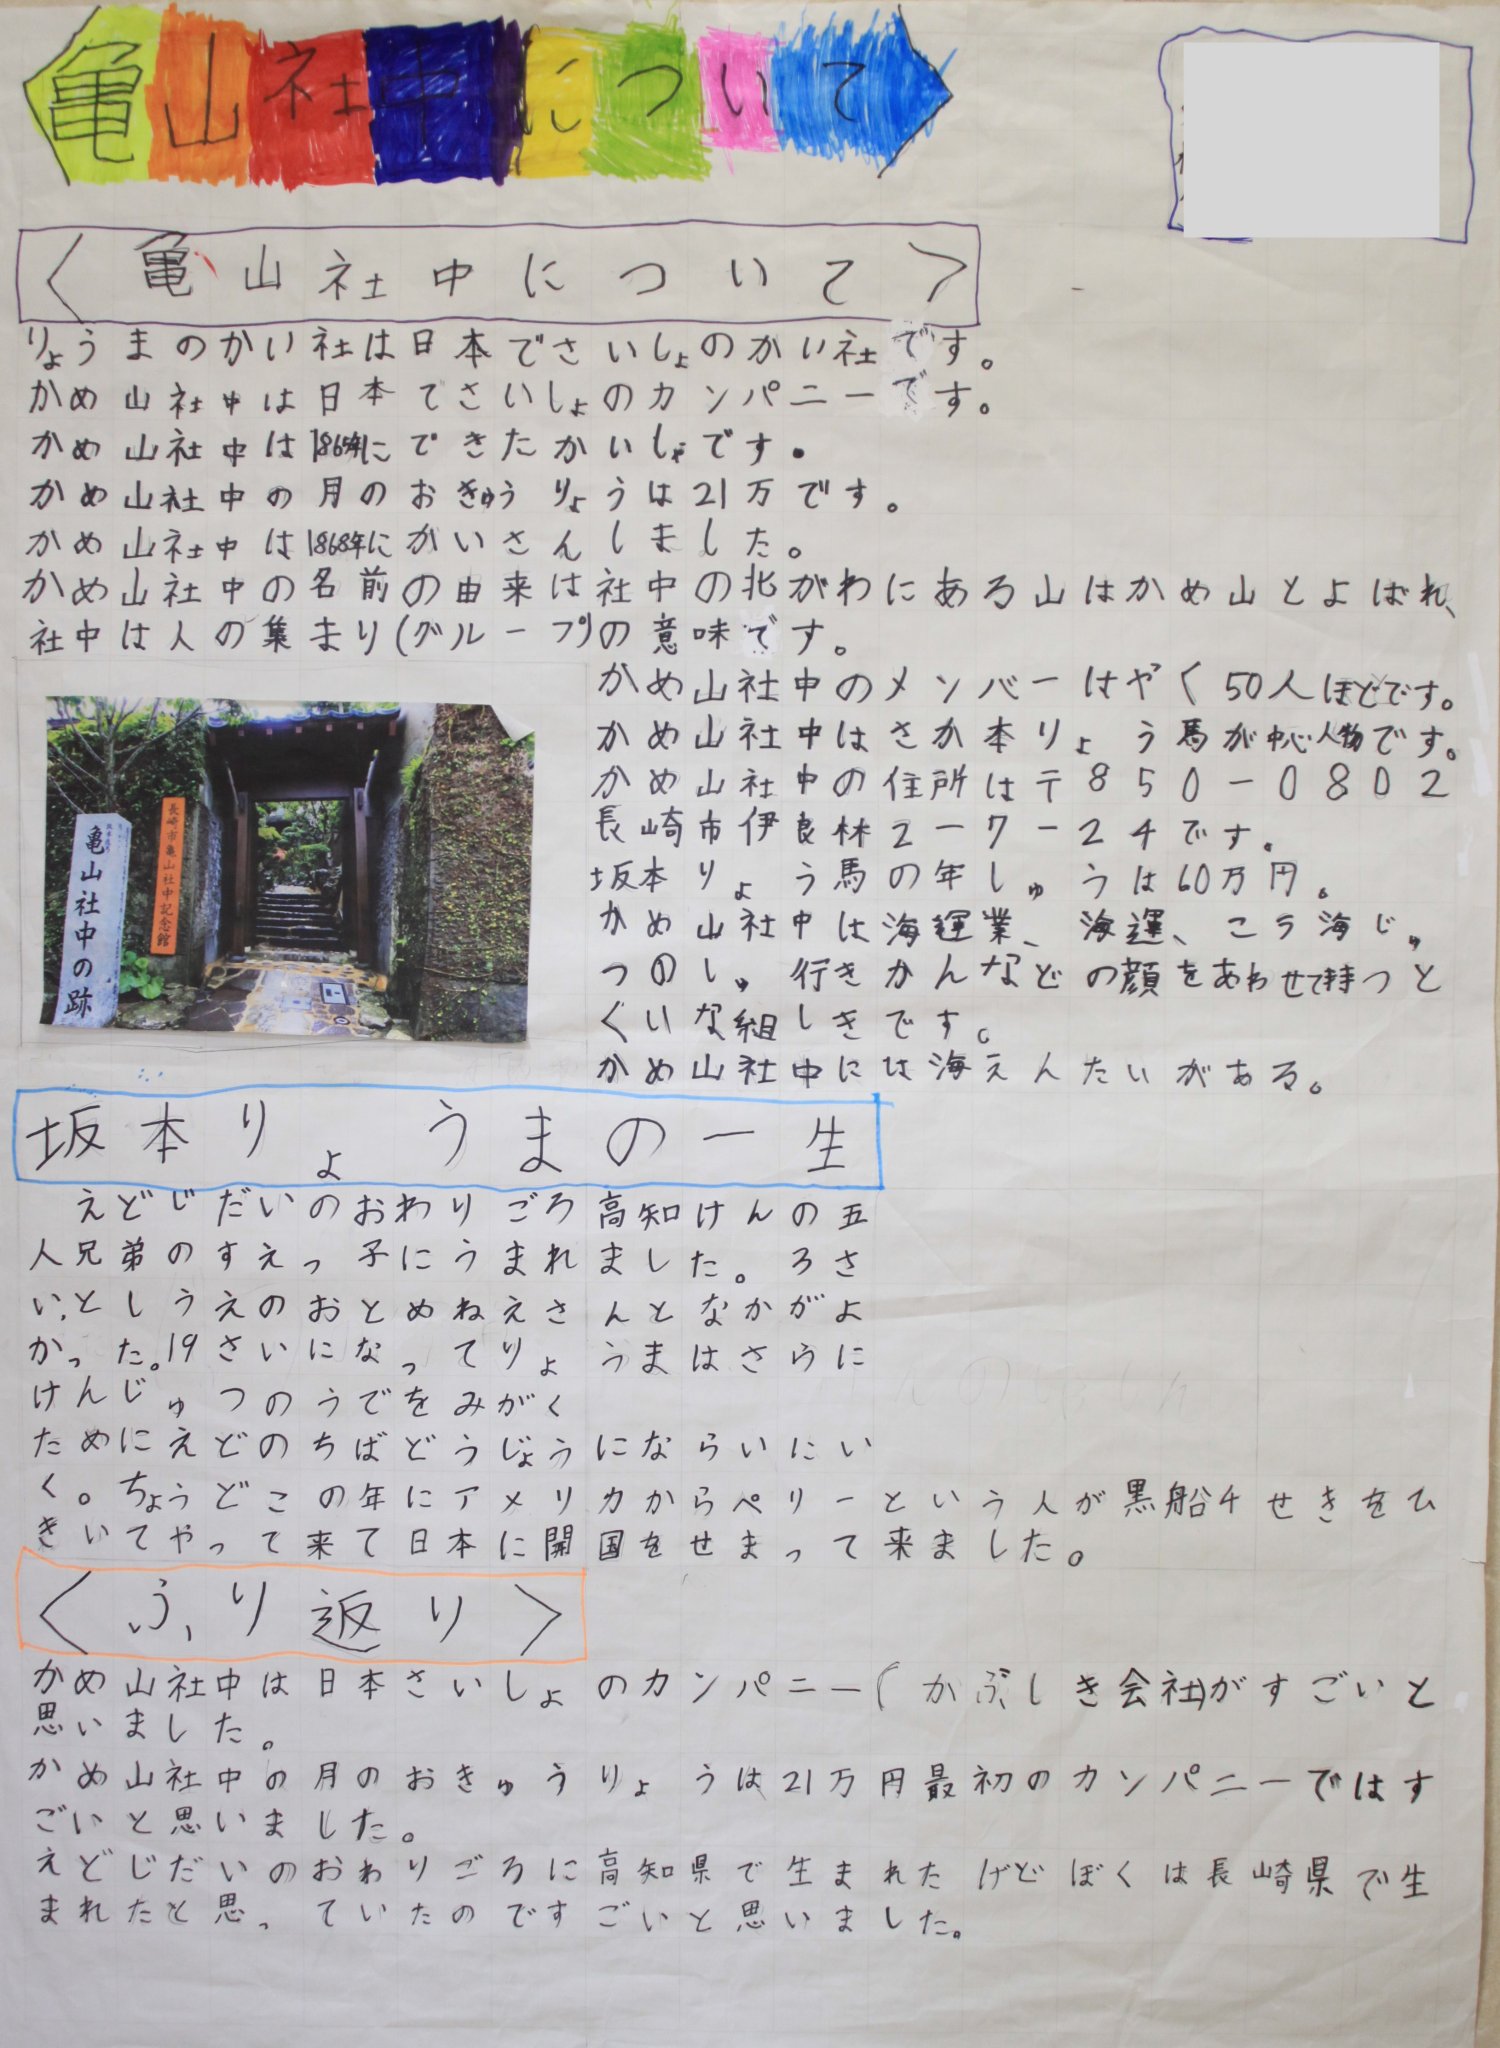 亀山社中について
〈亀山社中について〉
りょうまのかい社は日本でさいしょのかい社です。
かめ山社中は日本でさいしょのカンパニーです。
かめ山社中は1865年にできたかいしゃです。
かめ山社中の月のおきゅうりょうは21万です。
かめ山社中は1868年にかいさんしました。
かめ山社中の名前の由来は社中の北がわにある山はかめ山とよばれ、
社中は人の集まり(グループ)の意味です。
かめ山社中のメンバーはやく50人ほどです。
かめ山社中はさか本りょう馬が中心人物です。
かめ山社中の住所は〒850-0802
長崎市伊良林2-7-24です。
坂本りょう馬の年しゅうは60万円。
かめ山社中は海運業、海運、こう海じゅ
つのしゅ行きかんなどの顔をあわせて持つと
くいな組しきです。
かめ山社中には海えんたいがある。
亀山社中の跡
長崎市亀山社中記念館
坂本りょうまの一生
えどじだいのおわりごろ高知けんの五
人兄弟のすえっ子にうまれました。3さ
いとしうえのおとめねえさんとなかがよ
かった。19さいになってりょうまはさらに
けんじゅつのうでをみがく
ためにえどのちばどうじょうにならいにい
く。ちょうどこの年にアメリカからペリーという人が黒船4せきをひ
きいてやって来て日本に開国をせまって来ました。
〈ふり返り〉
かめ山社中は日本さいしょのカンパニー(かぶしき会社)がすごいと
思いました。
かめ山社中の月のおきゅうりょうは21万円最初のカンパニーではす
ごいと思いました。
えどじだいのおわりごろに高知県で生まれたけどぼくは長崎県で生
まれたと思っていたのですごいと思いました。